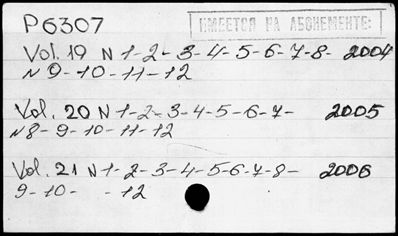 P6307
ИМЕЕТСЯ НА АБОНЕМЕНТЕ:
Vol. 19 N 1-2-3-4-5-6-7-8- 2004
N 9-10-11-12
Vol. 20 N 1-2-3-4-5-6-7- 2005
N8-9-10-11-12
Vol. 21 N 1-2-3-4-5-6-7-8- 2006
9-10- -12